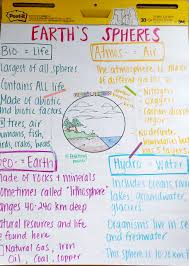 Post-it
EARTH'S SPHERES
Bio = Life
Largest of all spheres
Contains ALL life
Made of abiotic
and biotic factors
trees, air
humans, fish,
birds, crabs, bears
Atmos = Air
The atmosphere is made
of different gases
Nitrogen
Oxygen
Carbon dioxide
Geo = Earth
Made of rocks + minerals
Sometimes called "lithosphere"
Ranges 40-240 km deep
Natural resources and life
found here
Natural Gas, Iron
Oil, Coal, Copper
Hydro = Water
Includes oceans, rivers
lakes, groundwater
glaciers
Organisms live in
and freshwater
This sphere is 10-20 km